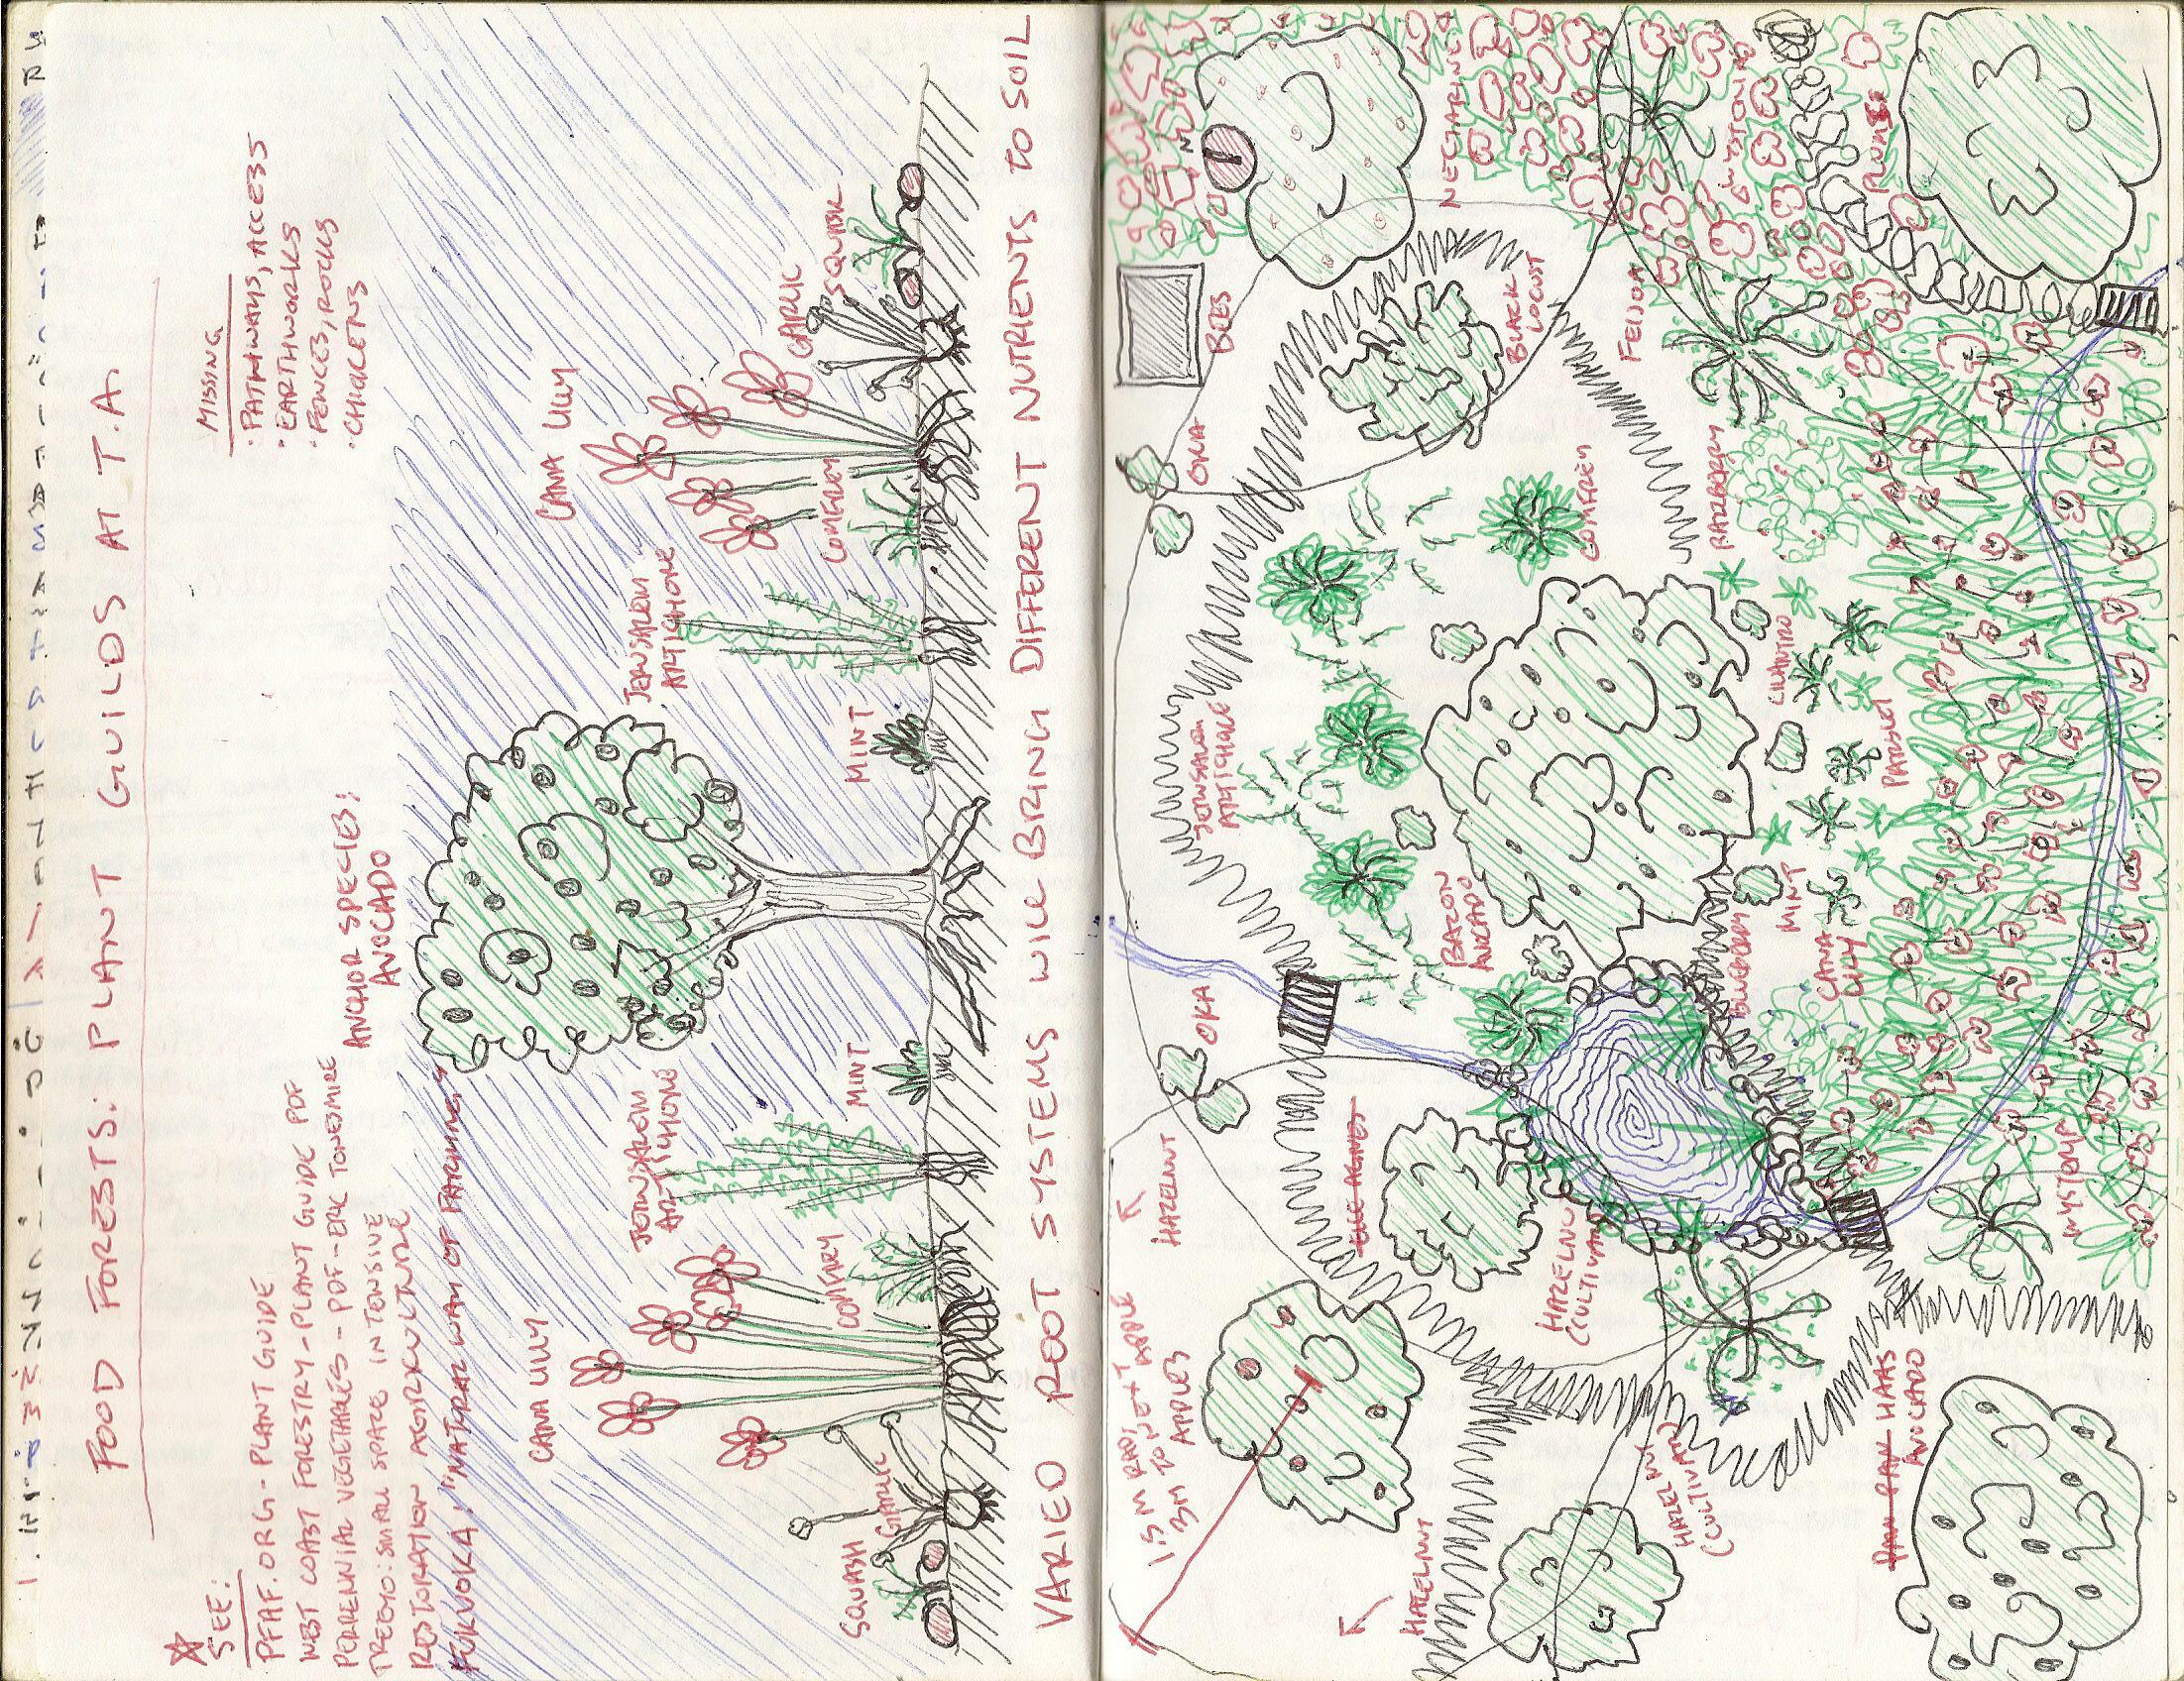 FOOD FORESTS: PLANT GUILDS AT T.A.
SEE:
PFAF.ORG - PLANT GUIDE
WEST COAST FORESTRY - PLANT GUIDE PDF
PERENNIAL VEGETABLES - PDF - ERIC TONESMIRE
RESTORATION AGRIKULTURE
FUKUOKA, "NATURAL WAY OF FARMING"
MISSING
· PATHWAYS, ACCESS
· EARTHWORKS
· FENCES, ROCKS
· CHICKENS
ANCHOR SPECIES:
AVOCADO
SQUASH
GARLIC
CANA LILY
COMFRY
JERUSALEM
ARTICHOKE
MINT
MINT
JERUSALEM
ARTICHOKE
COMFREY
CANA LILY
GARLIC
SQUASH
VARIED ROOT SYSTEMS WILL BRING DIFFERENT NUTRIENTS TO SOIL
1.5 M RADI
3M TO NEXT APPLE
APPLES
HAZELNUT
OKA
OKA
BEES
HAZELNUT
JERUSALEM
ARTICHOKE
BLACK
LOCUST
NECTARINE
BACON
AVOCADO
COMFREY
FEIJOA
HAZELNUT
(CULTIVAR)
HAZELNUT
(CULTIVAR)
MINT
CILANTRO
PARSLEY
CANA
LILY
PLUMS
HAAS
AVOCADO